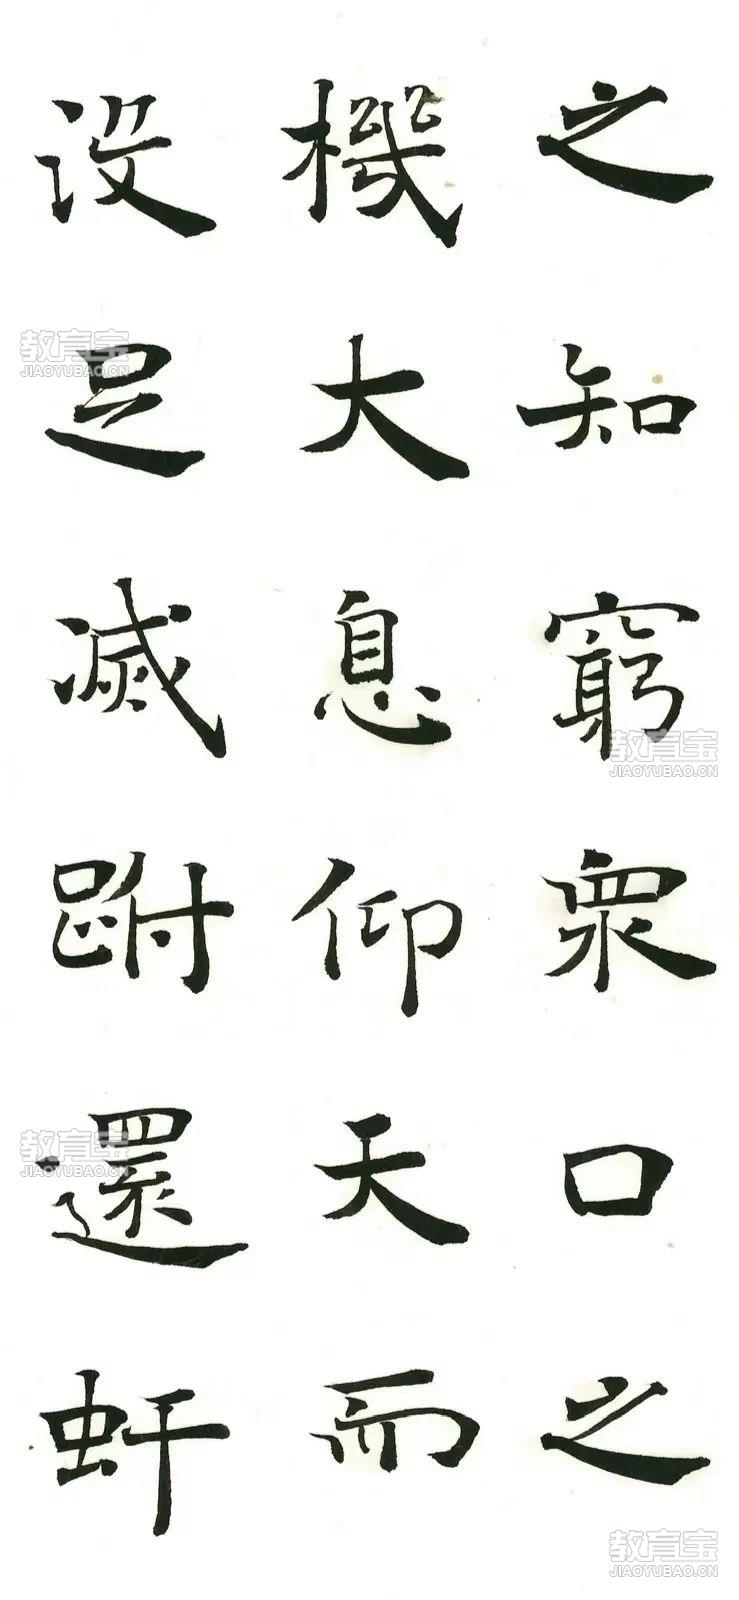 之知窮衆口之
機大息仰天而
没足滅跗還虷
教育宝
JIAOYUBAO.CN
教育宝
JIAOYUBAO.CN
教育宝
JIAOYUBAO.CN
教育宝
JIAOYUBAO.CN